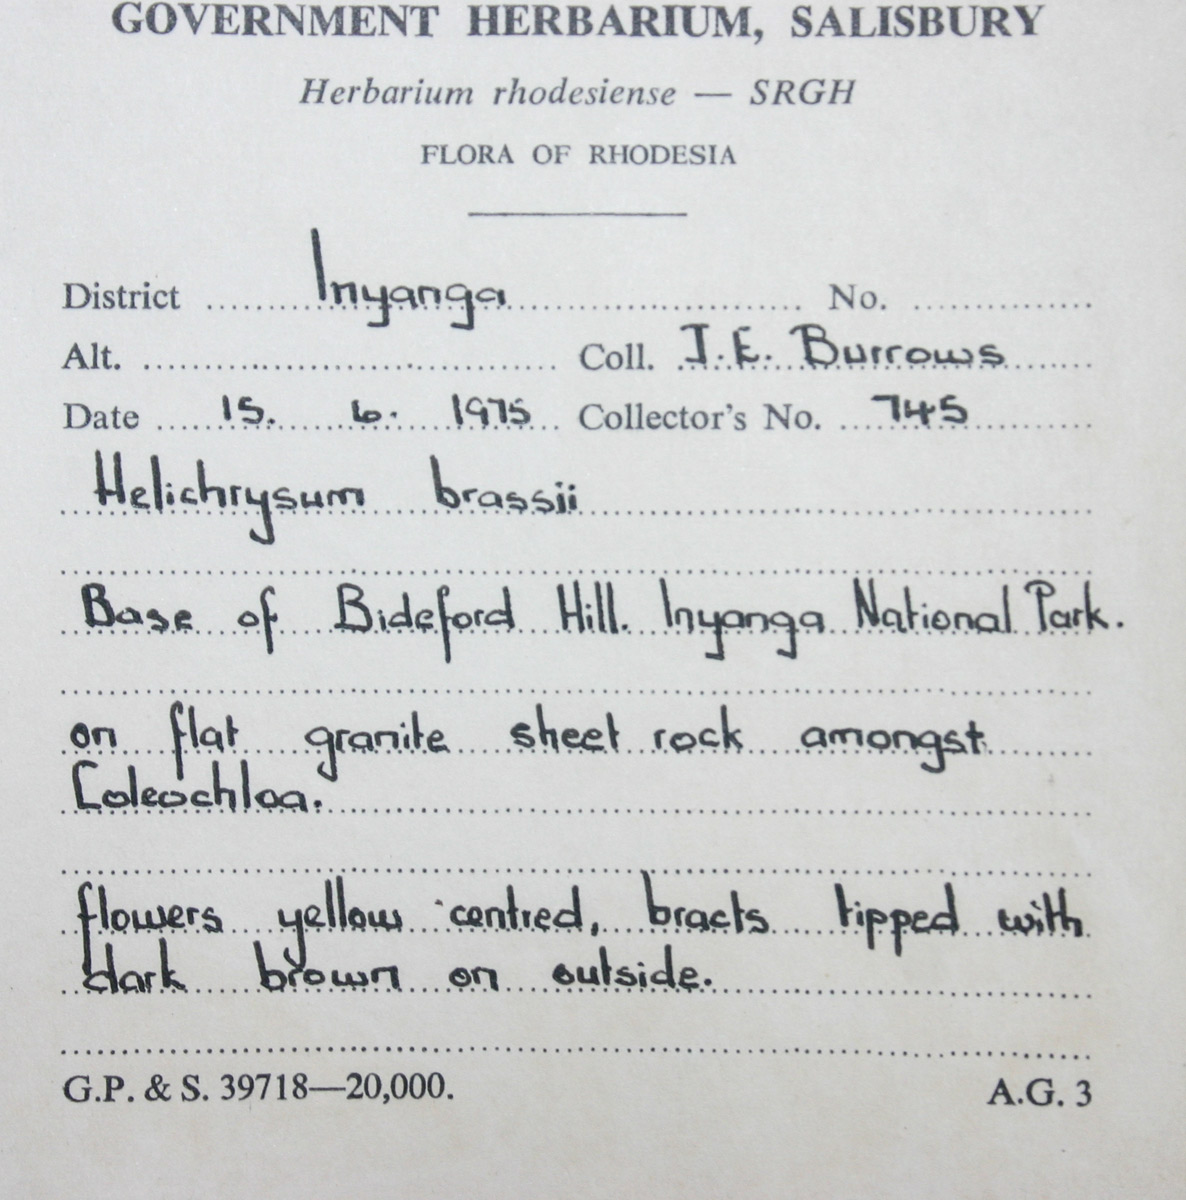 GOVERNMENT HERBARIUM, SALISBURY
Herbarium rhodesiense — SRGH
FLORA OF RHODESIA
District Inyanga No.
Alt. Coll. J.E. Burrows
Date 15. 6. 1975 Collector's No. 745
Helichrysum brassii
Base of Bideford Hill. Inyanga National Park.
on flat granite sheet rock amongst
Coleochloa.
flowers yellow centred, bracts tipped with
dark brown on outside.
G.P. & S. 39718—20,000. A.G. 3